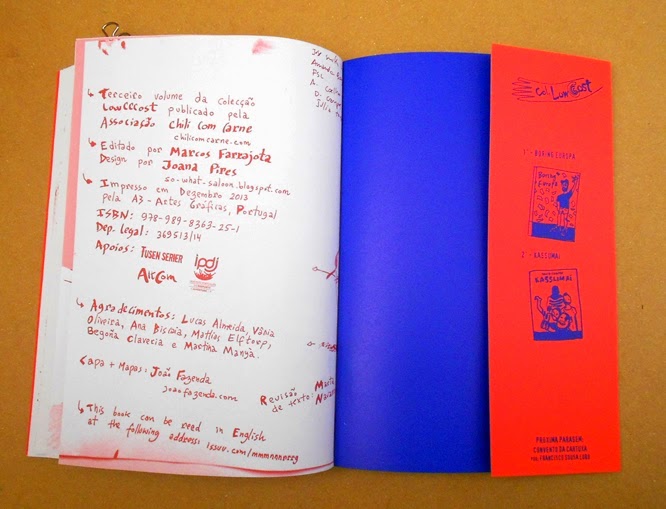 ↳ Terceiro volume da colecção
LowCCCost publicado pela
Associação Chili Com Carne
chilicomcarne.com
↳ Editado por Marcos Farrajota
Design por Joana Pires
so-what-saloon.blogspot.com
↳ Impresso em Dezembro 2013
pela A3 - Artes Gráficas, Portugal
ISBN: 978-989-8363-25-1
Dep. legal: 369513/14
Apoios: TUSEN SERIER ipdj
AllCom
↳ Agradecimentos: Lucas Almeida, Vânia
Oliveira, Ana Biscaia, Mattias Elftorp,
Begoña Claveria e Martina Manyà.
Capa + Mapas: João Fazenda
joaofazenda.com
Revisão
de texto:
↳ This book can be read in English
at the following address: issuu.com/mmmnnnrrrg
Col. LowCCCost
1 - BORING EUROPA
Boring
Europa
2 - KASSUMAI
KASSUMAI
PRÓXIMA PARAGEM:
CONVENTO DA CARTUXA
POR FRANCISCO SOUSA LOBO